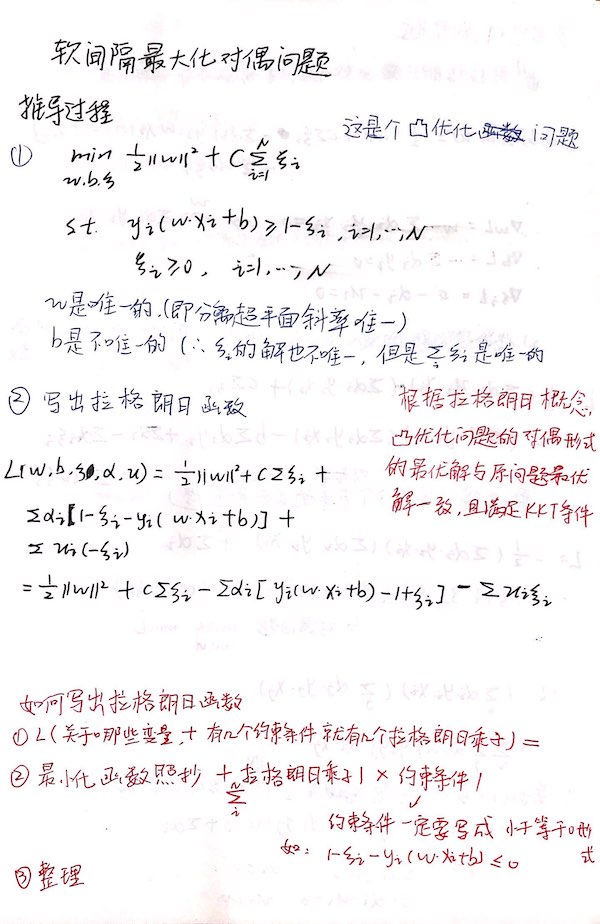 软间隔最大化对偶问题
推导过程
这是个凸优化函数问题
① min 1/2||w||² + C Σ_{i=1}^{N} ξi
w.b.ξ
s.t. yi(w·xi+b) ≥ 1-ξi, i=1,…,N
ξi ≥ 0, i=1,…,N
w是唯一的.(即分离超平面斜率唯一)
b是不唯一的 (∴ ξi的解也不唯一, 但是Σξi是唯一的
② 写出拉格朗日函数
根据拉格朗日概念,
凸优化问题的对偶形式
的最优解与原问题最优
解一致,且满足KKT条件
L(w,b,ξ,α,u) = 1/2||w||² + CΣξi +
Σαi[1-ξi-yi(w·xi+b)] +
Σui(-ξi)
= 1/2||w||² + CΣξi - Σαi[yi(w·xi+b)-1+ξi] - Σuiξi
如何写出拉格朗日函数
① L(关于哪些变量,+ 有几个约束条件就有几个拉格朗日乘子) =
② 最小化函数照抄 + Σ_{i}^{N} 拉格朗日乘子1 × 约束条件1
约束条件一定要写成 小于等于0形式
如: 1-ξi-yi(w·xi+b) ≤ 0
③ 整理